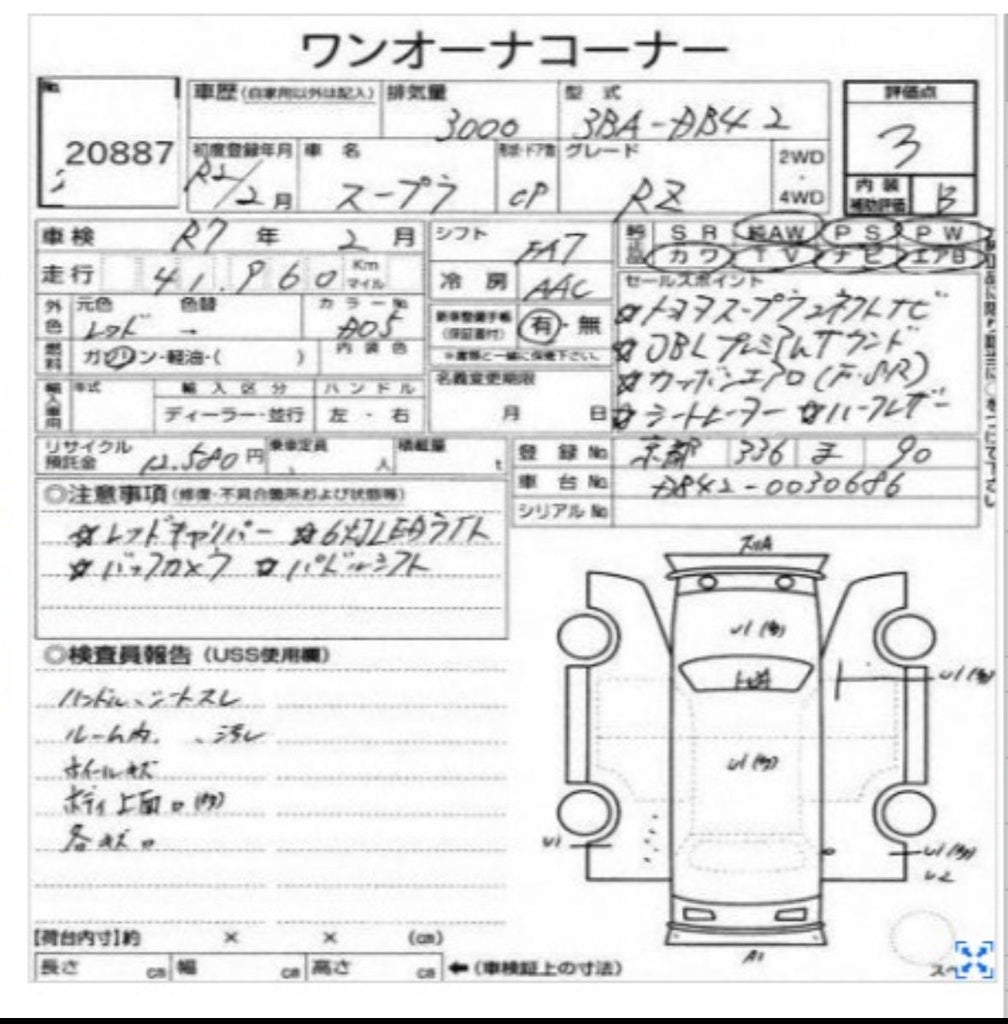 ワンオーナコーナー
No.
20887
車歴(自家用以外は記入) 排気量 3000 型式 3BA-DB42 評価点 3
初度登録年月 R2/2月 車名 スープラ 形状・ドア数 CP グレード RZ 2WD・4WD 内装補助評価 B
車検 R7年 2月 シフト FA7 純正品 SR 純AW PS PW
カワ TV ナビ エアB
走行 41,960 Km マイル 冷房 AAC
セールスポイント
外色 元色 レッド 色替 → カラーNo. D05
新車整備手帳(保証書付) 有・無
※書類と一緒に保管下さい。
☆トヨタスープラコネクトナビ
☆JBLプレミアムサウンド
☆カーボンエアロ(F・S・R)
☆シートヒーター ☆ハーフレザー
燃料 ガソリン・軽油・( ) 内装色
輸入車用 年式 輸入区分 ハンドル
ディーラー・並行 左・右
名義変更期限
月 日
リサイクル預託金 12,580円 乗車定員 人 積載量 t
登録No. 京都 336 ま 90
車台No. DB42-0030686
シリアルNo.
◎注意事項(修復・不具合箇所および状態等)
☆レッドキャリパー ☆6灯LEDライト
☆バックカメラ ☆パドルシフト
◎検査員報告(USS使用欄)
ハンドル、シートスレ
ルーム内、汚レ
ホイールキズ
ボディ上面
各
U1
U1
U1
U1
U2
U1
A1
【荷台内寸】約 × × (cm)
長さ cm 幅 cm 高さ cm ←(車検証上の寸法)
スペ